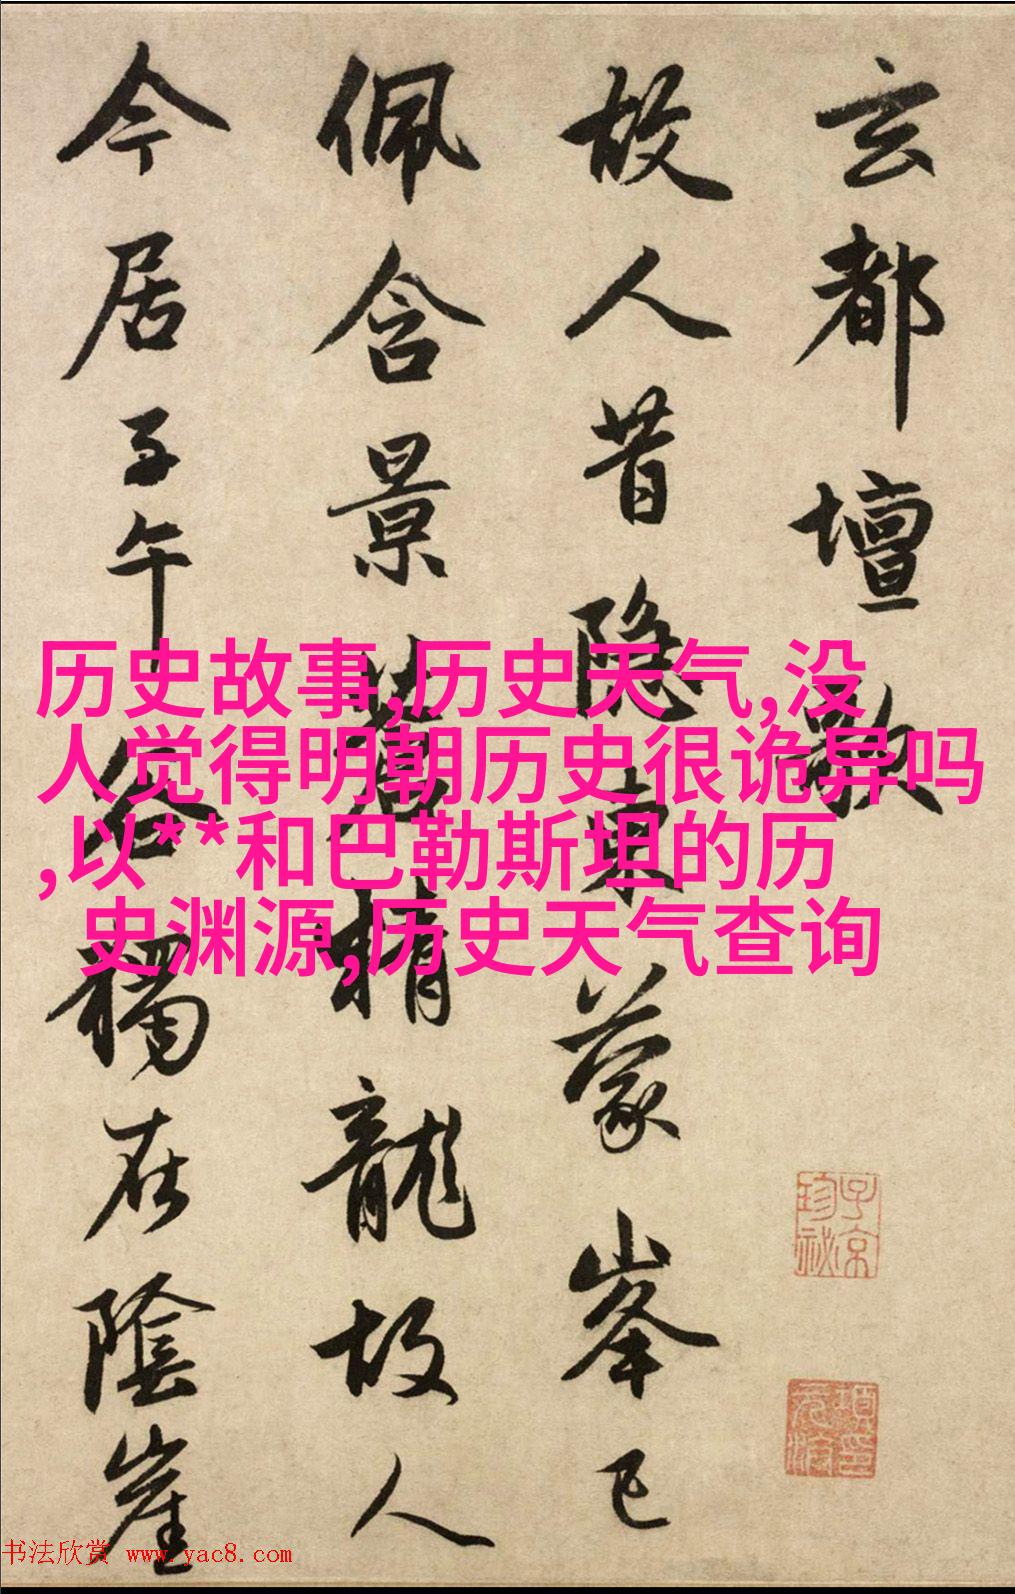 玄都壇歌
故人昔隐東蒙峯已
佩含景蒼精龍故人
今居子午谷獨在陰崖
历史故事,历史天气,没
人觉得明朝历史很诡异吗
,以**和巴勒斯坦的历
史渊源,历史天气查询
子京
珍祕
项元汴印
书法欣赏 www.yac8.com